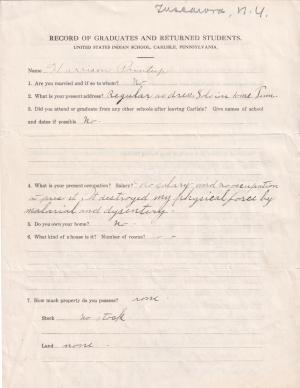 Tuscarora, N.Y.
RECORD OF GRADUATES AND RETURNED STUDENTS.
UNITED STATES INDIAN SCHOOL, CARLISLE, PENNSYLVANIA.
Name Harrison Printup
1. Are you married and if so to whom? No
2. What is your present address? Regular address Soldiers Home Tenn.
3. Did you attend or graduate from any other schools after leaving Carlisle? Give names of school
and dates if possible No.
4. What is your present occupation? Salary? no salary and no occupation
it destroyed my physical force by
malarial and dysentery.
5. Do you own your home? No
6. What kind of a house is it? Number of rooms?
7. How much property do you possess? none
Stock no stock
Land none.